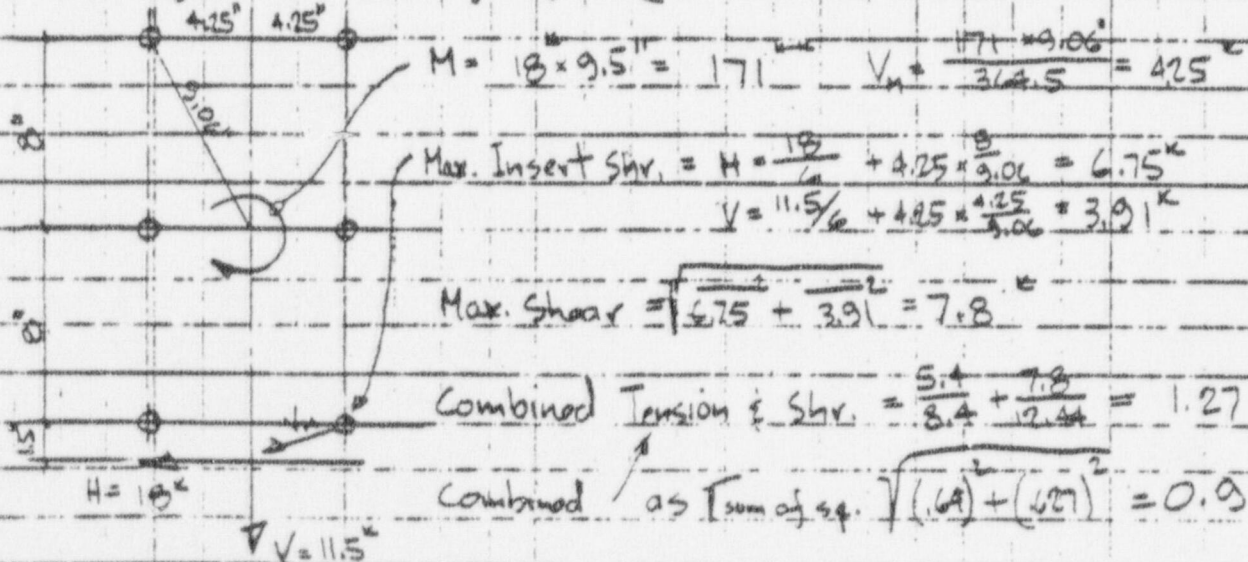 4.25" 4.25"
M = 18ᵏ × 9.5" = 171 Vₘ = 171 × 9.06" / 364.5 = 425ᵏ
9.06"
8"
Max. Insert Shr. = H = 18/6 + 4.25 × 8/9.06 = 6.75ᵏ
V = 11.5/6 + 4.25 × 4.25/9.06 = 3.91ᵏ
8"
Max. Shear = √6.75² + 3.91² = 7.8ᵏ
Combined Tension & Shr. = 5.4/8.4 + 7.8/12.44 = 1.27
1.5"
H = 18ᵏ
Combined as √sum of sq. √(.64)² + (.627)² = 0.9
V = 11.5ᵏ